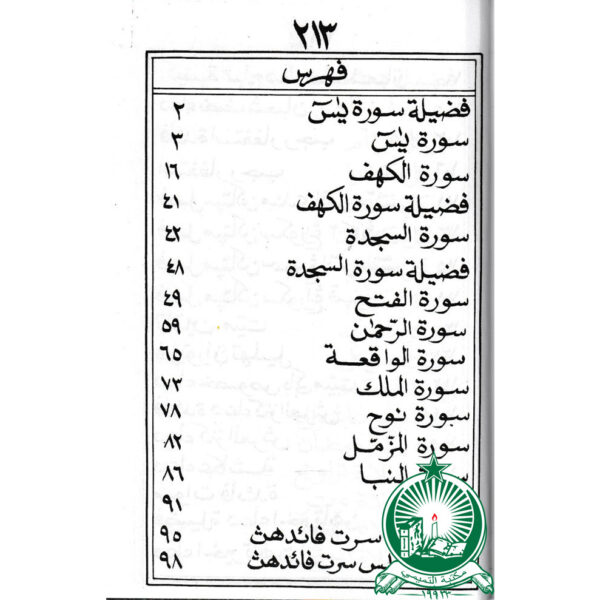 ٢١٣
فهرس
فضيلة سورة يٰسٓ ٢
سورة يٰسٓ ٣
سورة الكهف ١٦
فضيلة سورة الكهف ٤١
سورة السجدة ٤٢
فضيلة سورة السجدة ٤٨
سورة الفتح ٤٩
سورة الرّحمٰن ٥٩
سورة الواقعة ٦٥
سورة الملك ٧٣
سورة نوح ٧٨
سورة المزّمّل ٨٢
النبا ٨٦
٩١
سرت فائدهڽ ٩٥
سرت فائدهڽ ٩٨
مكتبة